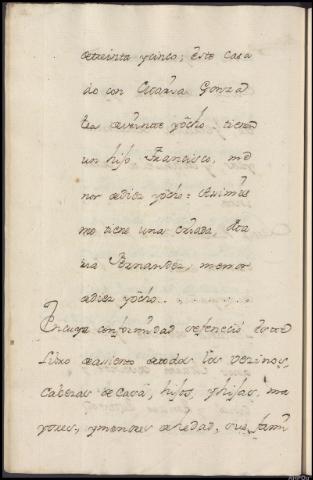 detreinta ycinco; este casa
do con Maria Gonza
lez deveintte yocho: tienen
un hijo, Francisco, me
nor adiez yocho: Asimes
mo tiene una criada, Ma
ria Fernandez, menor
adiez yocho..
En cuya conformidad sefenecio este
Libro deasiento detodos los Vezinos,
Cabezas de Casa, hijos, yhijas, ma
yores, ymenores dehedad, sus fami